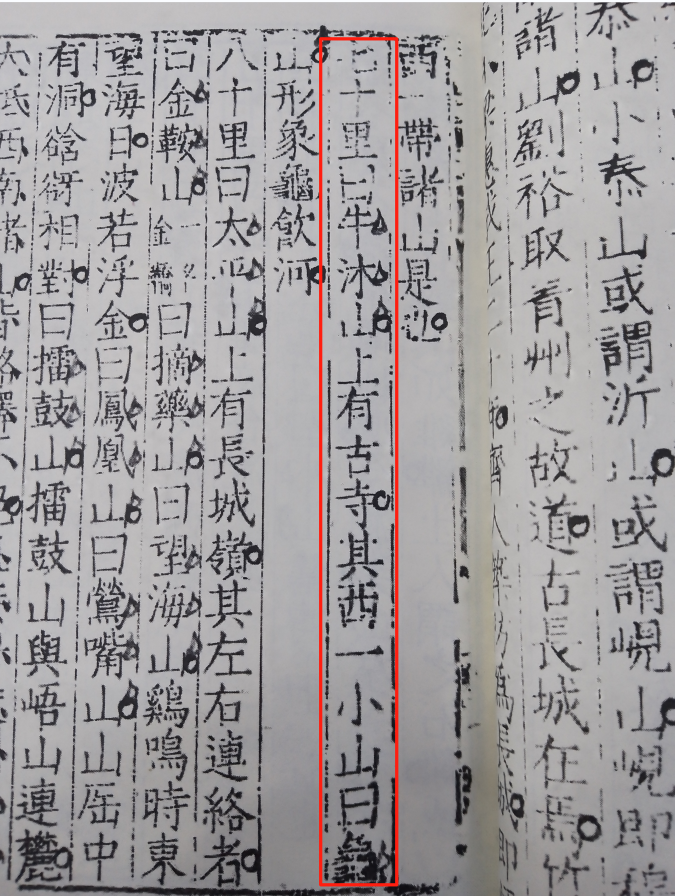 泰山小泰山或謂沂山或謂峴山峴即
諸山劉裕取青州之故道古長城在焉竹
齊人築防爲長城即
西一帶諸山是也
七十里曰牛沐山上有古寺其西一小山曰
山形象龜飲河
八十里曰太平山上有長城嶺其左右連絡者
曰金鞍山一名金曰摘藥山曰望海山鷄鳴時東
望海日波若浮金曰鳳凰山曰鶯嘴山山厓中
有洞谽谺相對曰擂鼓山擂鼓山與峿山連麓
大抵西南諸山皆絡繹不絕